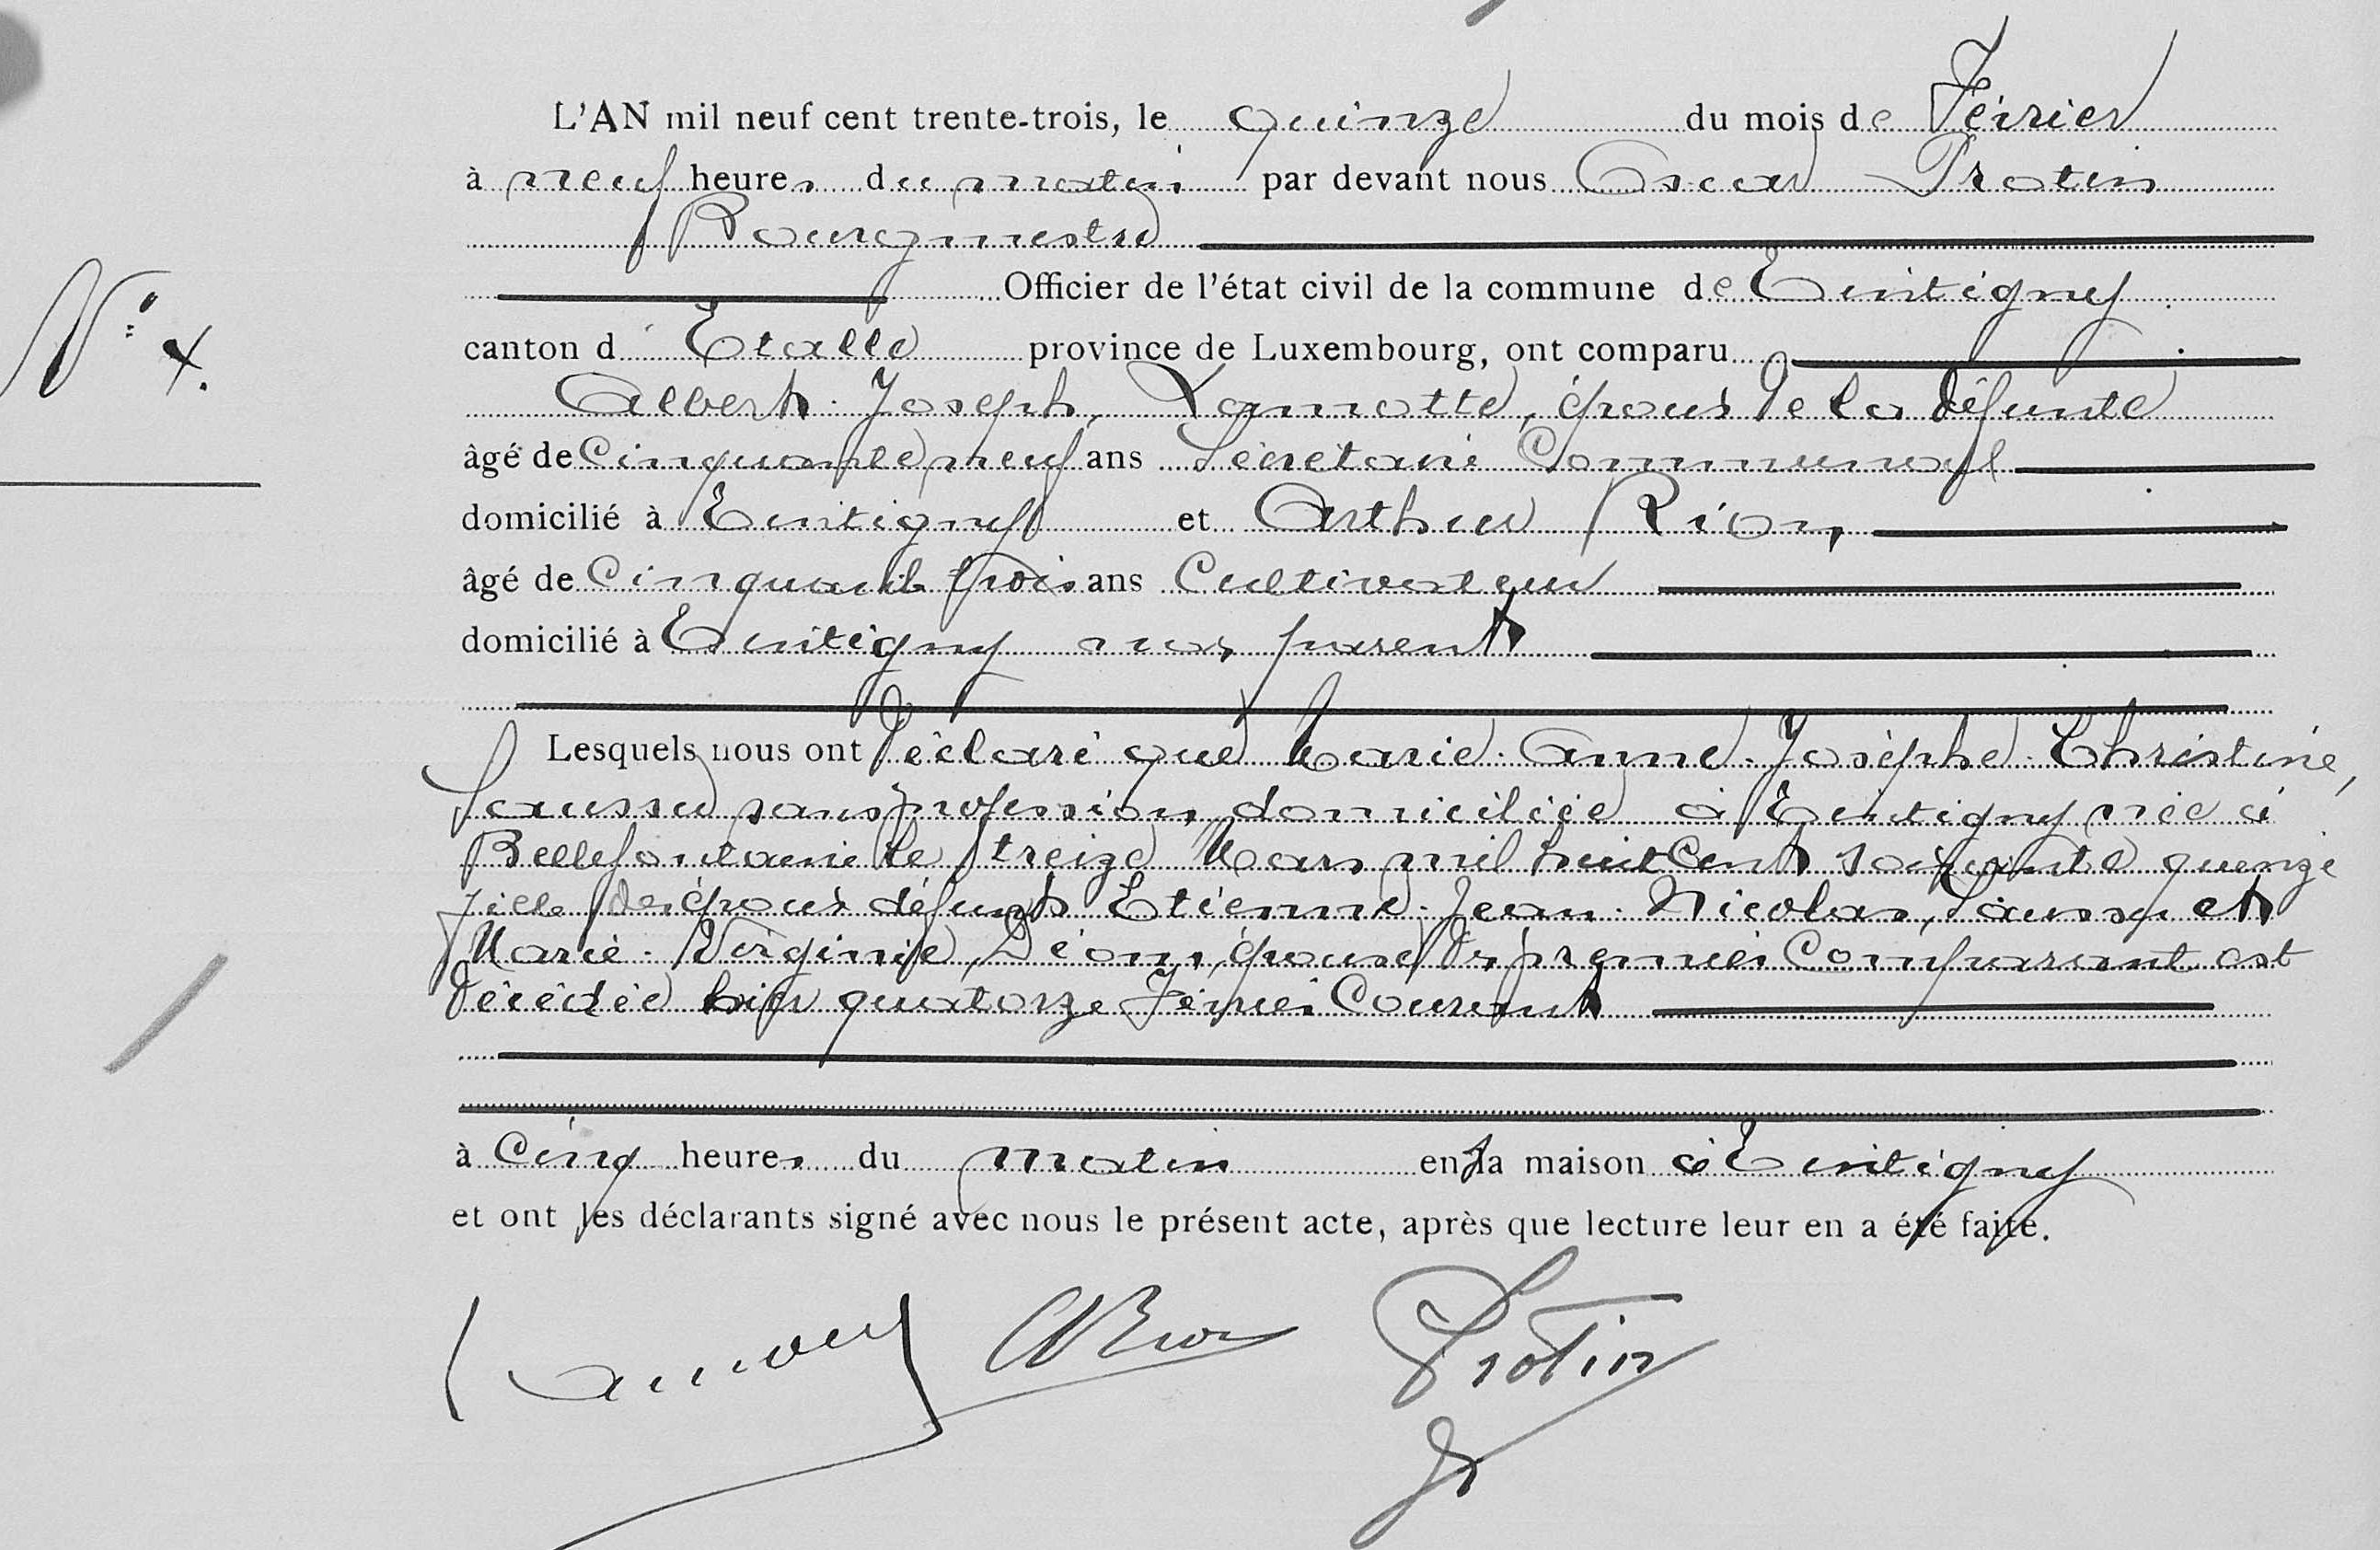 L'AN mil neuf cent trente-trois, le quinze du mois de Février
à neuf heures du matin par devant nous Oscar Protin
Bourgmestre
Officier de l'état civil de la commune de Tintigny
N° 4.
canton d'Etalle province de Luxembourg, ont comparu
Albert Joseph, Lamotte, époux de la défunte
âgé de Cinquante neuf ans Secrétaire Communal
domicilié à Tintigny et Arthur Rion,
âgé de Cinquante trois ans Cultivateur
domicilié à Tintigny non parent
Lesquels nous ont déclaré que Marie-Anne-Josèphe-Christine,
Saussu sans profession, domiciliée à Tintigny née à
Bellefontaine le treize Mars mil huit cent soixante quinze
fille des époux défunts Etienne-Jean-Nicolas, Saussu et
Marie-Virginie, Déom, épouse du premier Comparant est
décédée hier quatorze Février Courant
à Cinq heures du matin en sa maison à Tintigny
et ont les déclarants signé avec nous le présent acte, après que lecture leur en a été faite.
ARion Protin